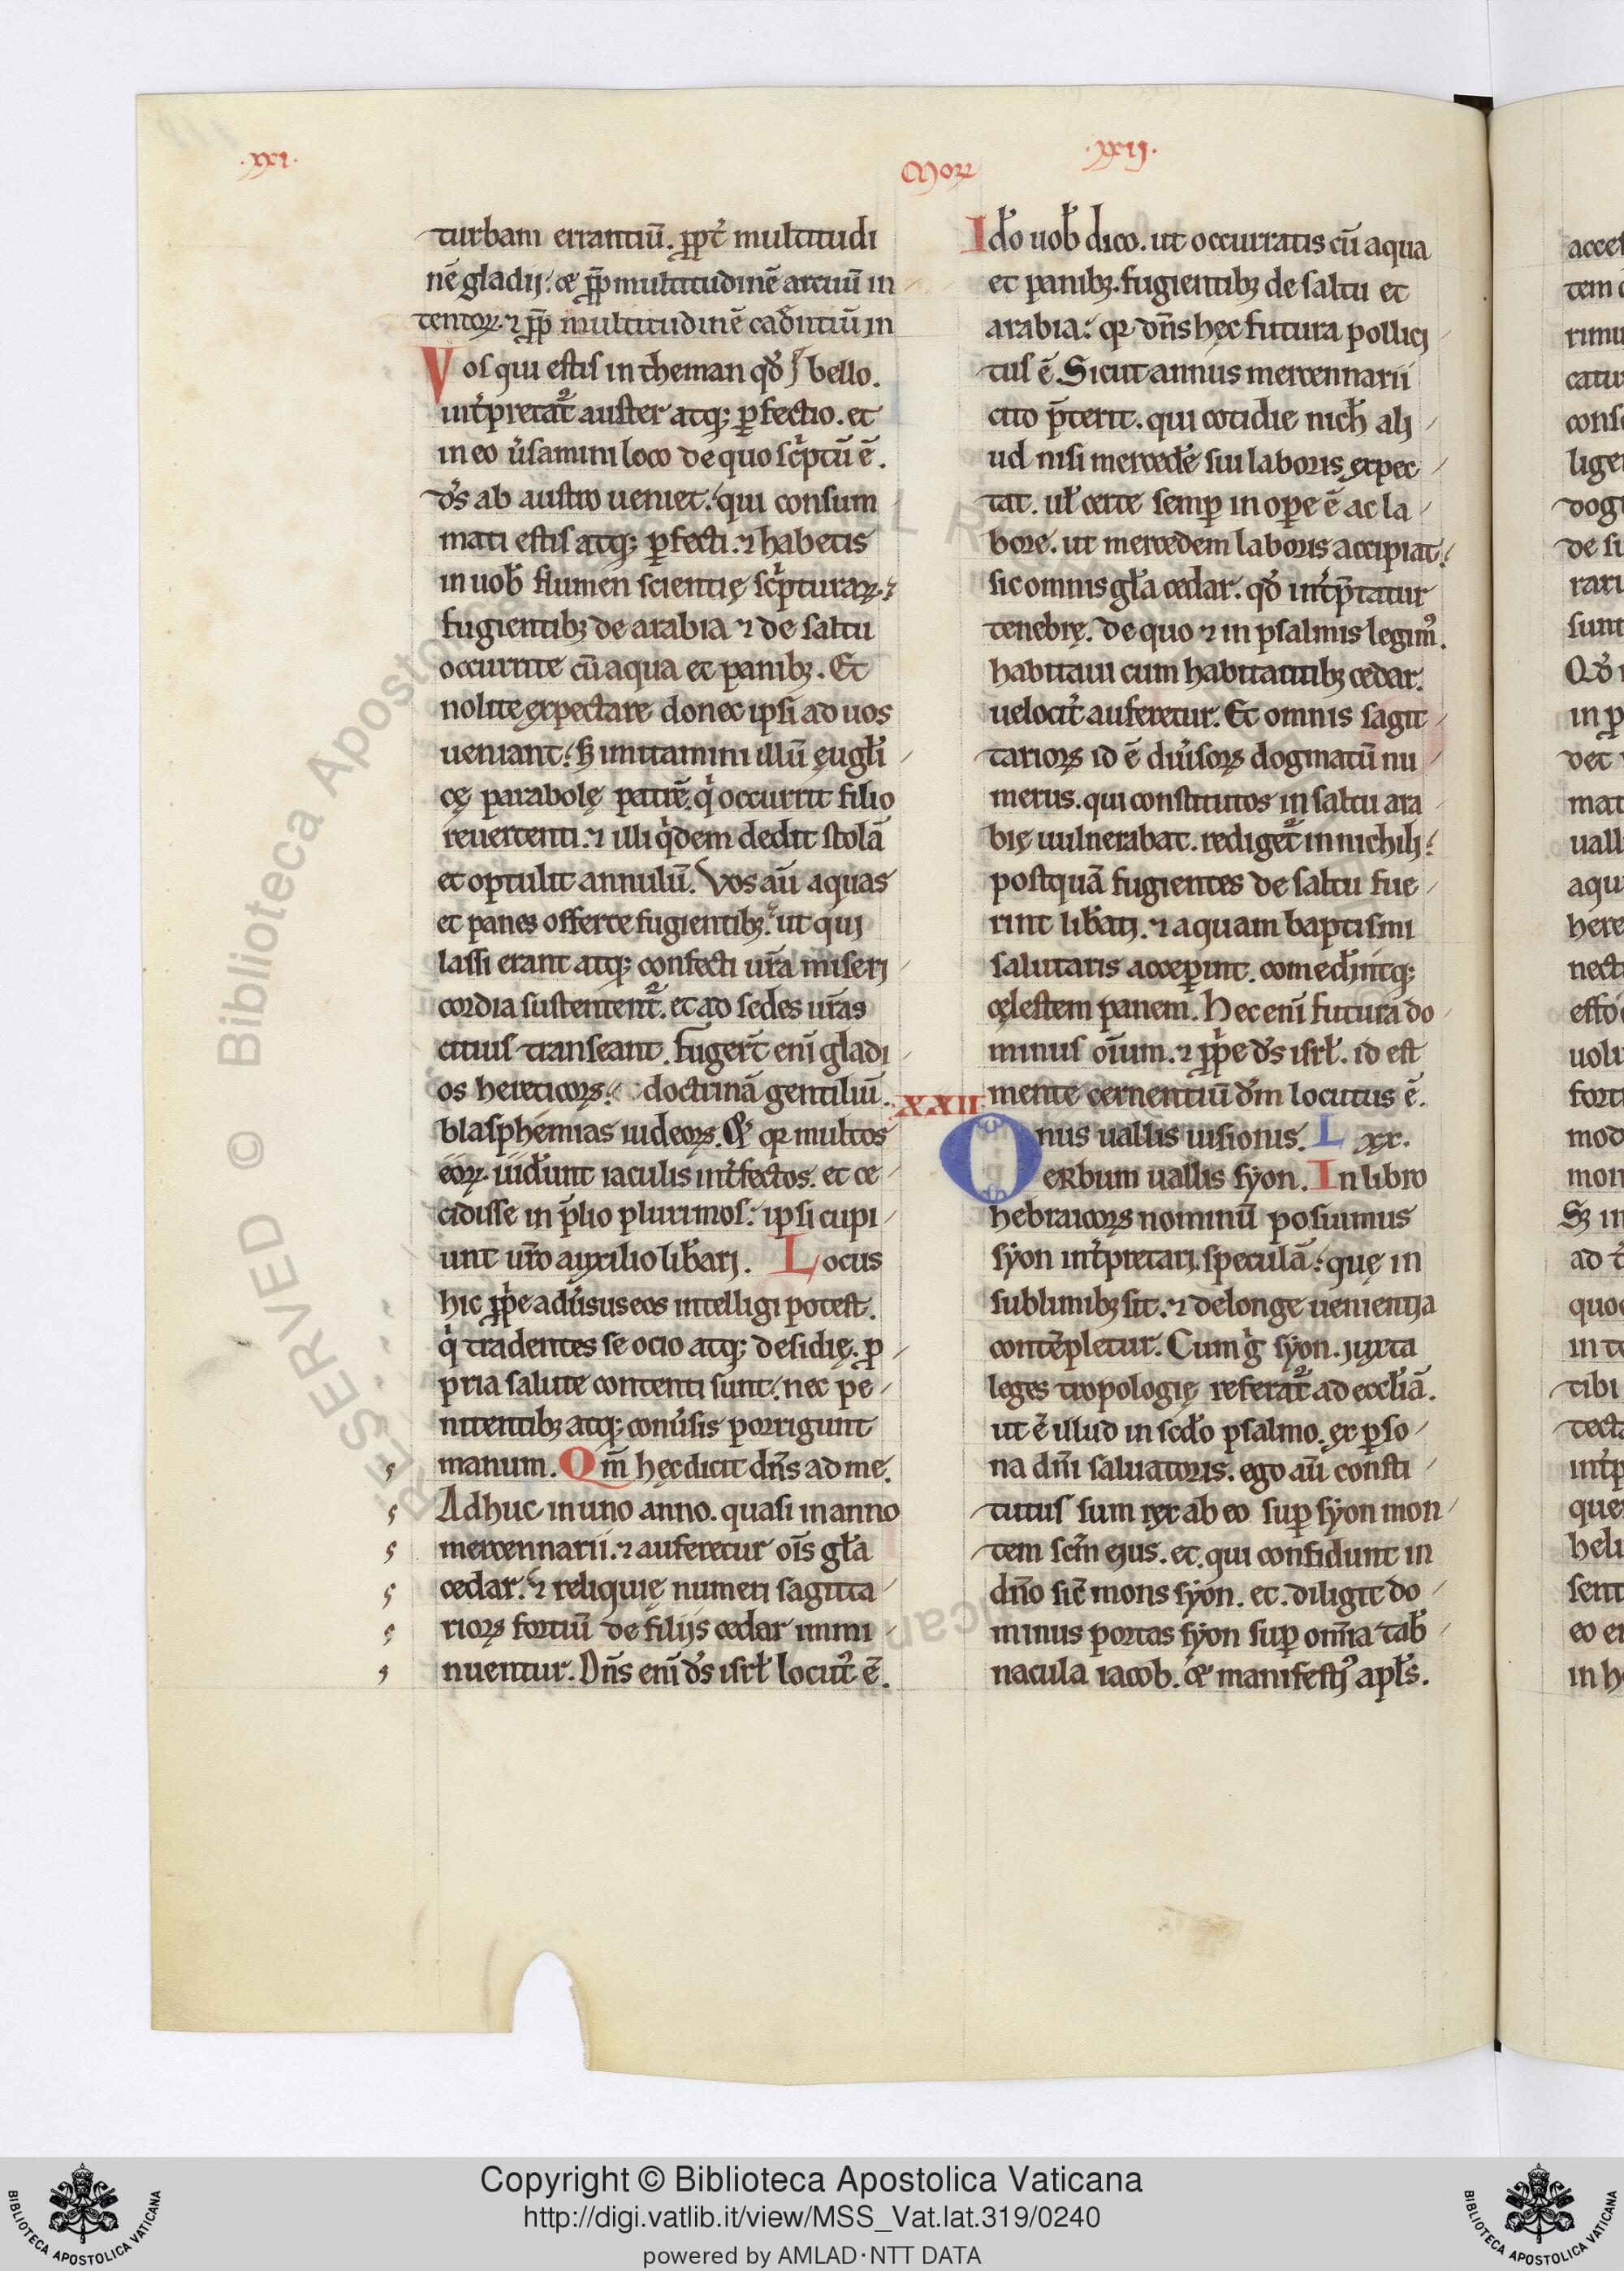 .xxi.
Morꝝ
.xxij.
turbam errantiū. ꝓpt̄ multitudi
nē gladij: & ꝓp̄ multitudinē arcuū in
tentoꝝ. ⁊ ꝓp̄ multitudinē cadentiū in
Vos qui estis in theman qd̓ bello.
int̓pretat̄ auster atq; ꝑfectio. et
in eo ūsamini loco de quo sc̓ptū ē.
d̓s ab austro ueniet: qui consum
mati estis atq; ꝑfecti. ⁊ habetis
in uob̄ flumen scientię sc̓pturaꝝ:
fugientibꝫ de arabia ⁊ de saltu
occurrite cū aqua et panibꝫ. Et
nolite expectare donec ipsi ad uos
ueniant: sꝫ imitamini illū ęugl̓i
cę parabolę patrē. q̓ occurrit filio
reuertenti. ⁊ illi q̓dem dedit stolā
et optulit annulū. Vos aū aquas
et panes offerte fugientibꝫ: ut qui
lassi erant atq; confecti ur̄a miseri
cordia sustentent̄. et ad sedes ur̄as
citius transeant. Fuger̄t enī gladi
os hereticoꝝ: doctrinā gentiliū.
blasphemias iudeoꝝ. Et qꝛ multos
eoꝝ uider̄unt iaculis int̓fectos. et ce
cidisse in p̄lio plurimos: ipsi cupi
unt ur̄o auxilio lib̓ari. Locus
hic ꝓp̓e adūsus eos intelligi potest.
q̓ tradentes se ocio atq; desidię. ꝓ
pria salute contenti sunt: nec pe
nitentibꝫ atq; conūsis porrigunt
manum. Qm̄ hęc dicit dn̄s ad me.
Adhuc in uno anno. quasi in anno
mercennarii. ⁊ auferetur ois̄ gl̓a
cedar. ⁊ reliquię numeri sagitta
rioꝝ fortiū de filijs cedar immi
nuentur. Dn̄s enī d̓s isrl̓ locut̓ ē.
Id̓o uob̄ dico. ut occurratis cū aqua
et panibꝫ. fugientibꝫ de saltu et
arabia: qꝛ dn̄s hęc futura pollici
tus ē. Sicut annus mercennarii
cito p̄terit. qui cotidie nich̓ ali
ud nisi mercedē sui laboris expec
tat. ul̓ certe semꝑ in oꝑe ē ac la
bore. ut mercedem laboris accipiat:
sic omnis gl̓a cedar. qd̓ int̓p̄tatur
tenebrę. de quo ⁊ in psalmis legim̓.
habitaui cum habitantibꝫ cedar.
uelocit̓ auferetur. Et omnis sagit
tarioꝝ id ē diūsoꝝ dogmatū nu
merus. qui constitutos in saltu ara
bię uulnerabat. rediget̄ in nichilj:
postquā fugientes de saltu fue
rint lib̓atj. ⁊ aquam baptismi
salutaris acceꝑint. comed̓intq;
cęlestem panem. Hec enī futura do
minus oīum. ⁊ ꝓp̓e d̓s isrl̓. id est
mente cernentiū dm̄ locutus ē.
XXII
Onus uallis uisionis. L xx.
Uerbum uallis syon. In libro
hebraicoꝝ nominū posuimus
syon int̓pretari. speculā: quę in
sublimibꝫ sit. ⁊ de longe uenientia
contēpletur. Cum g̓ syon. juxta
leges tropologię referat̄ ad eccl̓iā.
ut ē illud in scd̓o psalmo. ex ꝑso
na dn̄i saluatoris. ego aū consti
tutus sum rex ab eo suꝑ syon mon
tem scm̄ ejus. et. qui confidunt in
dn̄o sic̄ mons syon. et. diligit do
minus portas syon suꝑ om̄ia tab̓
nacula iacob. & manifestj̓ apl̓s.
acces
tem
rimu
catu
cons
lige
dog
de su
raru
sunt
Qd̓
in ꝑ
uet
mat
uall
aqu
here
nect
effo
uolu
fort
mod
mon
Sꝫ in
ad
quod
in te
tibi
tecta
int̓p
que
helu
sent
eo en
in h
© Biblioteca Apostolica Vaticana ALL RIGHTS RESERVED
BIBLIOTECA APOSTOLICA VATICANA
Copyright © Biblioteca Apostolica Vaticana
http://digi.vatlib.it/view/MSS_Vat.lat.319/0240
powered by AMLAD·NTT DATA
BIBLIOTECA APOSTOLICA VATICANA